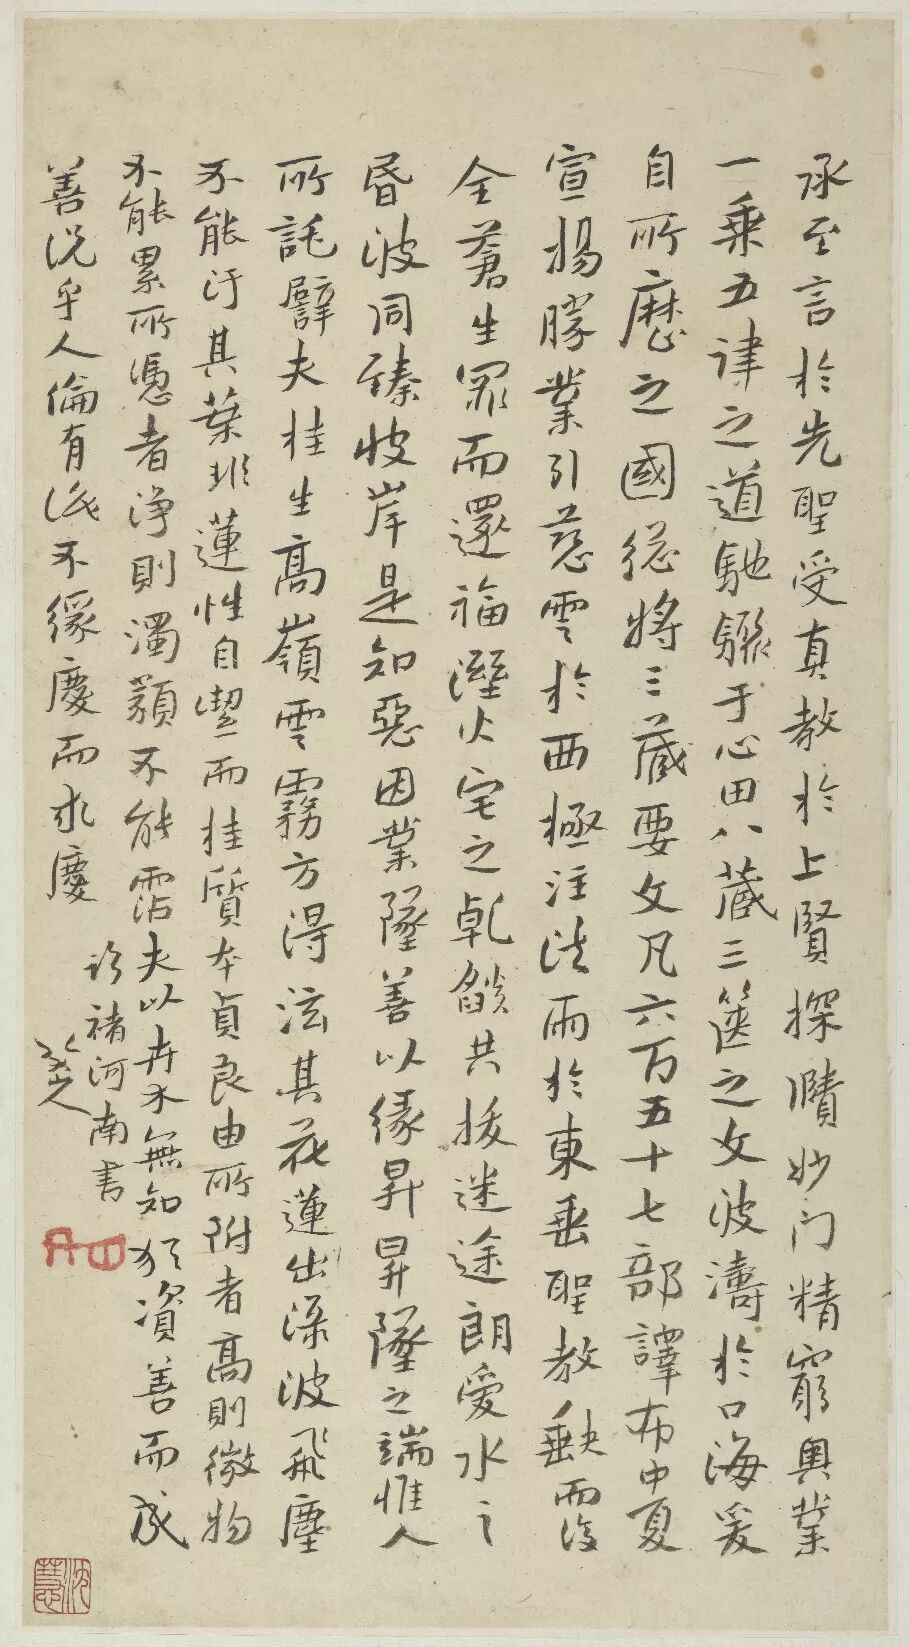 承至言於先聖受真教於上賢探賾妙門精窮奧業
一乘五律之道馳驟于心田八藏三篋之文波濤於口海爰
自所歷之國總將三藏要文凡六百五十七部譯布中夏
宣揚勝業引慈雲於西極注法雨於東垂聖教缺而復
全蒼生罪而還福溼火宅之乾燄共拔迷途朗愛水之
昏波同臻彼岸是知惡因業墜善以緣昇昇墜之端惟人
所託譬夫桂生高嶺雲霧方得泫其花蓮出淥波飛塵
不能汙其葉非蓮性自潔而桂質本貞良由所附者高則微物
不能累所憑者淨則濁類不能霑夫以卉木無知猶資善而成
善況乎人倫有識不緣慶而求慶
臨褚河南書
八大山人
沈慧